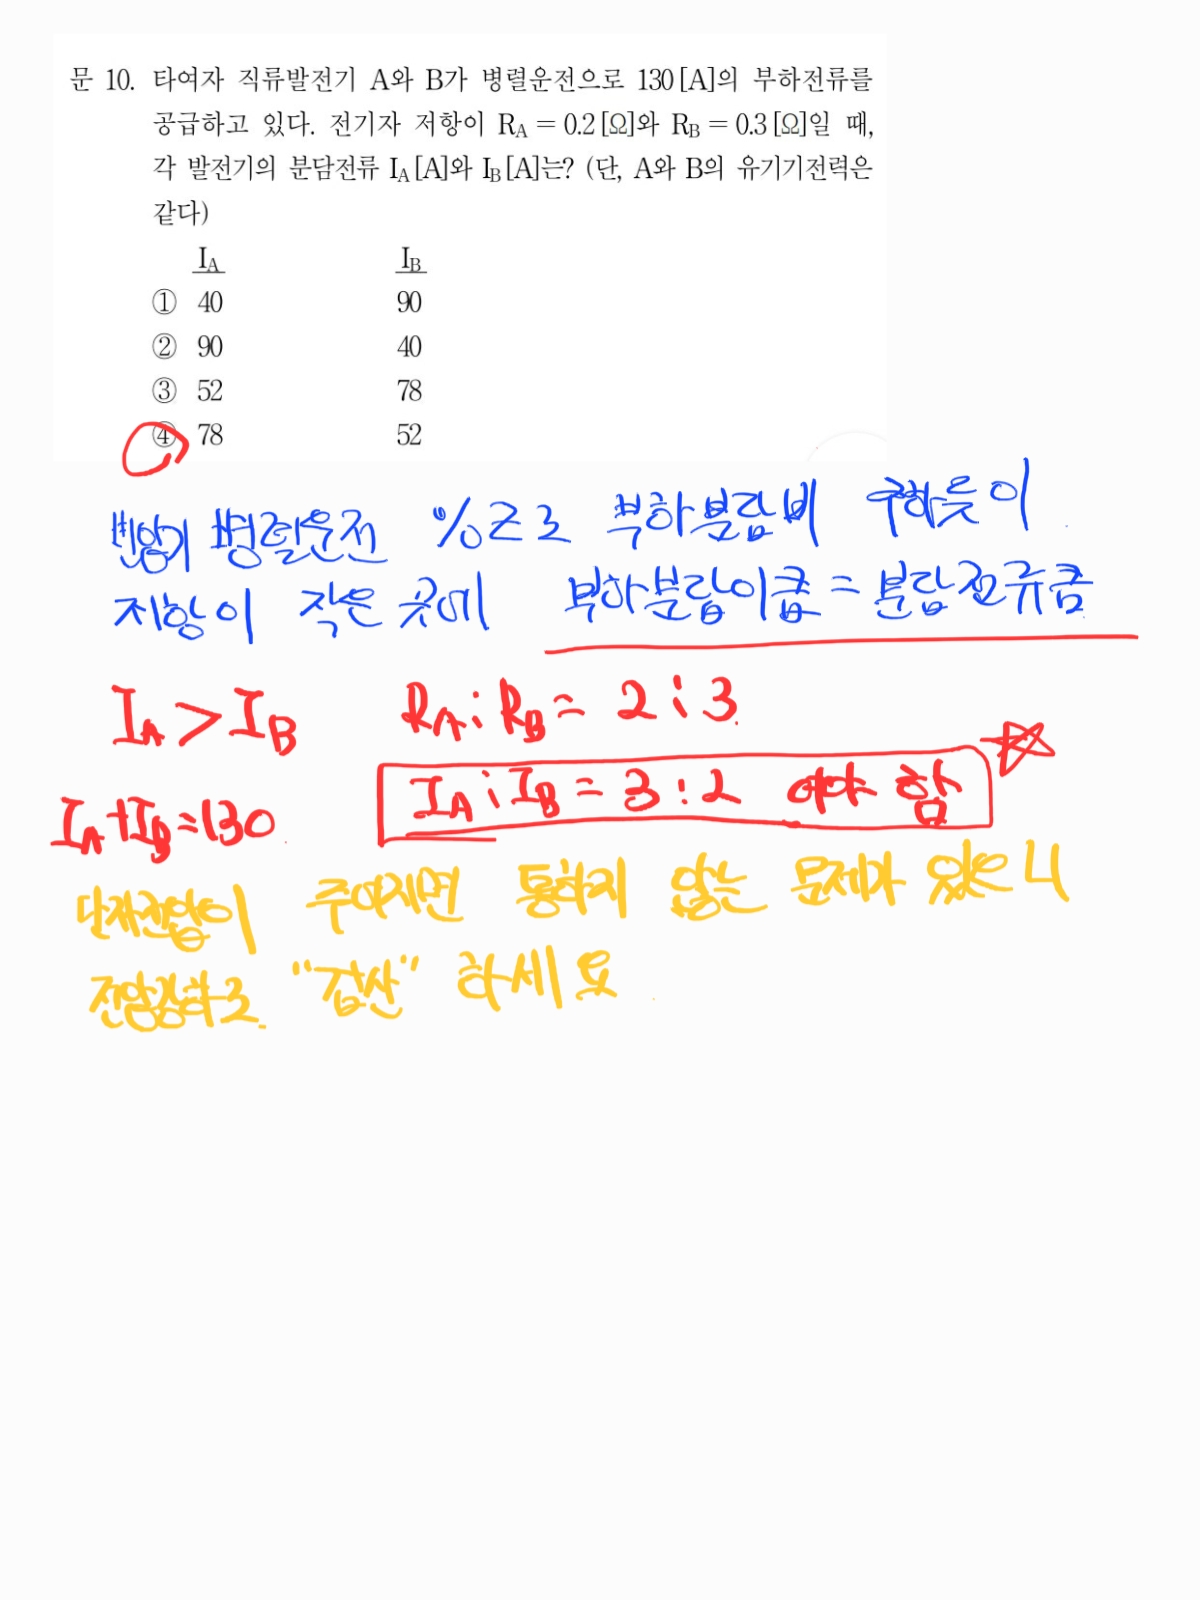 문 10. 타여자 직류발전기 A와 B가 병렬운전으로 130 [A]의 부하전류를
공급하고 있다. 전기자 저항이 RA = 0.2 [Ω]와 RB = 0.3 [Ω]일 때,
각 발전기의 분담전류 IA [A]와 IB [A]는? (단, A와 B의 유기기전력은
같다)
IA IB
① 40 90
② 90 40
③ 52 78
④ 78 52
변압기 병렬운전 %Z로 부하분담비 구하듯이
저항이 작은 곳에 부하분담이큼 = 분담전류큼
IA > IB RA : RB = 2 : 3
IA : IB = 3 : 2 여야 함
IA + IB = 130
단자전압이 주어지면 통하지 않는 문제가 있으니
전압강하로 "검산" 하세요